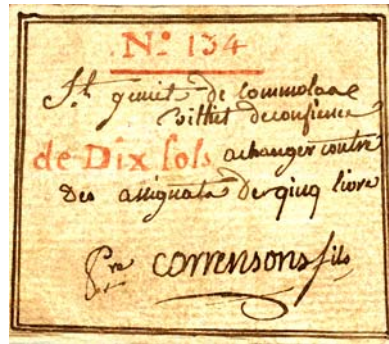 N° 134
St geniest de Commolaae
Billiet deconfience
de Dix sols achanger contre
Des assignats De çinq livre
Pre corrensons fils